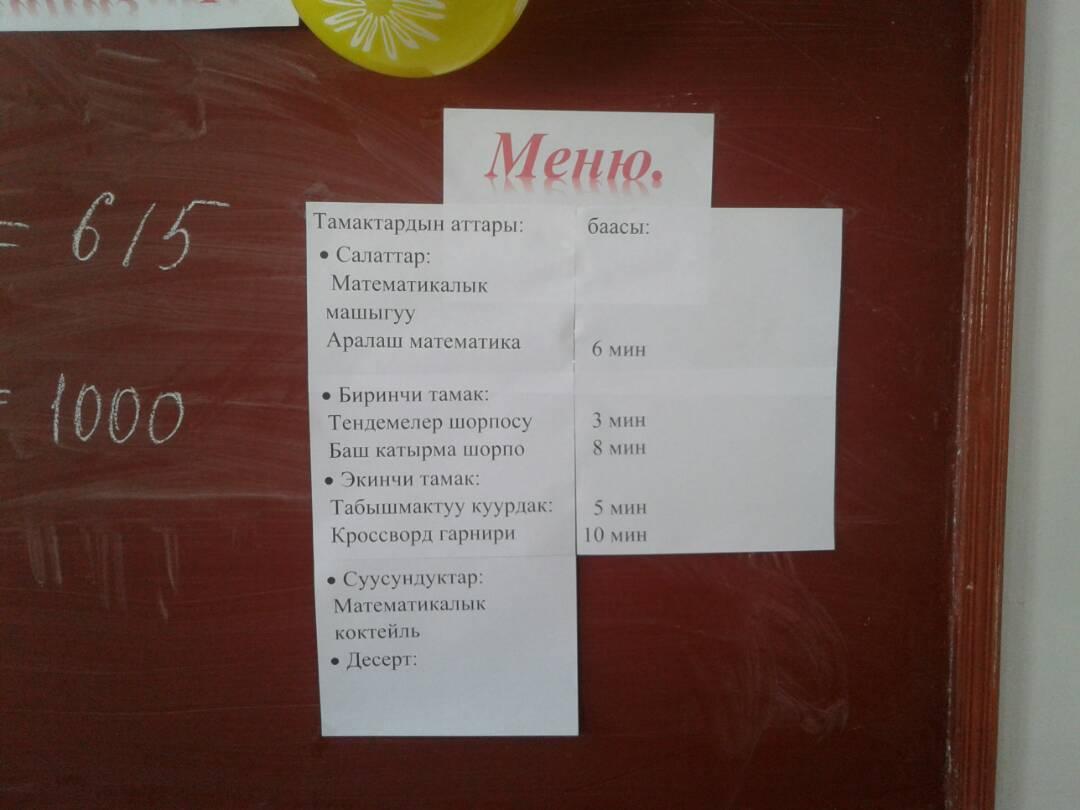 = 615
= 1000
Меню.
Тамактардын аттары: баасы:
• Салаттар:
Математикалык
машыгуу
Аралаш математика 6 мин
• Биринчи тамак:
Тендемелер шорпосу 3 мин
Баш катырма шорпо 8 мин
• Экинчи тамак:
Табышмактуу куурдак: 5 мин
Кроссворд гарнири 10 мин
• Суусундуктар:
Математикалык
коктейль
• Десерт: